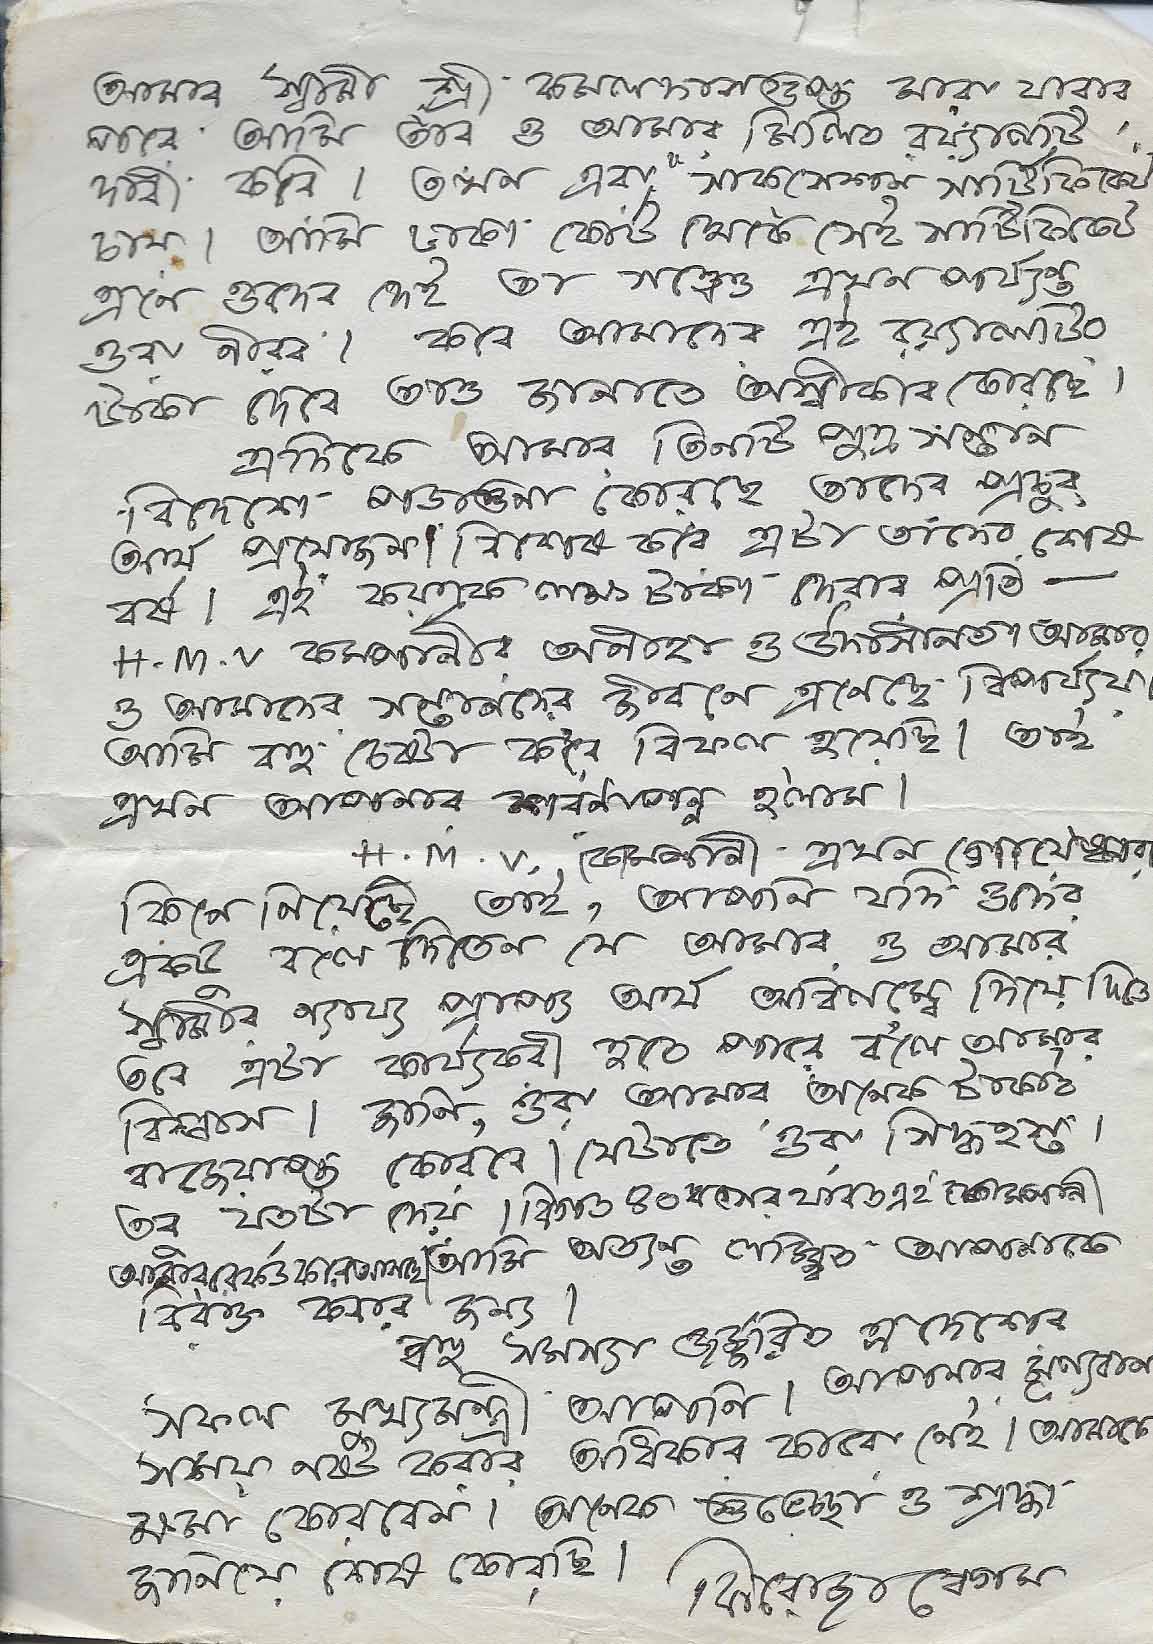 আমার স্বামী শ্রী কমল দাসগুপ্ত মারা যাবার
পরে আমি তাঁর ও আমার মিলিত রয়্যালটি
দাবী করি। তখন এরা "সাকসেশান সার্টিফিকেট
চায়। আমি ঢাকা কোর্ট থেকে সেই সার্টিফিকেট
এনে ওদের দেই তা সত্ত্বেও এখন পর্য্যন্ত
ওরা নীরব। কবে আমাদের এই রয়্যালটির
টাকা দেবে তাও জানাতে অস্বীকার কোরছে।
এদিকে আমার তিনটি পুত্র সন্তান
বিদেশে পড়াশুনা কোরছে তাদের প্রচুর
অর্থ প্রয়োজন। বিশেষ করে এটা তাঁদের শেষ
বর্ষ। এই কয়েক লক্ষ টাকা দেবার প্রতি —
H.M.V কমপানীর অনীহা ও উদাসীনতা আমার
ও আমাদের সন্তানদের জীবনে এনেছে বিপর্য্যয়।
আমি বহু চেষ্টা করে বিফল হয়েছি। তাই
এখন আপনার শরণাপন্ন হলাম।
H.M.V. কোমপানী এখন গোয়েঙ্কারা
কিনে নিয়েছে তাই, আপনি যদি ওদের
একটু বলে দিতেন যে আমার ও আমার
স্বামীর ন্যায্য প্রাপ্য অর্থ অবিলম্বে দিয়ে দিতে
তবে এটা কার্য্যকরী হতে পারে বলে আমার
বিশ্বাস। জানি, ওরা আমার অনেক টাকাই
বাজেয়াপ্ত কোরবে। সেটাতে ওরা সিদ্ধহস্ত।
তবু যতটা দেয়। বিগত ৪০ বৎসর যাবত এই কোমপানী
আমার রেকর্ড কোরে আসছে। আমি অত্যন্ত লজ্জিত আপনাকে
বিরক্ত করার জন্য।
বহু সমস্যা জর্জ্জরিত এ দেশের
সফল মুখ্যমন্ত্রী আপনি। আপনার মূল্যবান
সময় নষ্ট করার অধিকার কারো নেই। আমাকে
ক্ষমা কোরবেন। অনেক শুভেচ্ছা ও শ্রদ্ধা
জানিয়ে শেষ কোরছি।
ফিরোজা বেগম